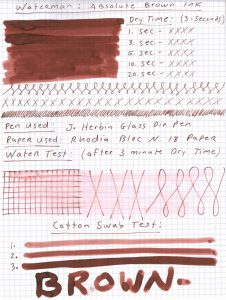 Waterman: Absolute Brown Ink
Dry Time: (3-seconds)
1. sec - XXXX
5. sec - XXXX
10. sec - XXXX
15. sec - XXXX
20. sec - XXXX
Pen Used: J. Herbin Glass Dip Pen
Paper Used: Rhodia Bloc N. 18 Paper
Water Test: (after 3 minute Dry Time)
Cotton Swab Test:
1.
2.
3.
BROWN-